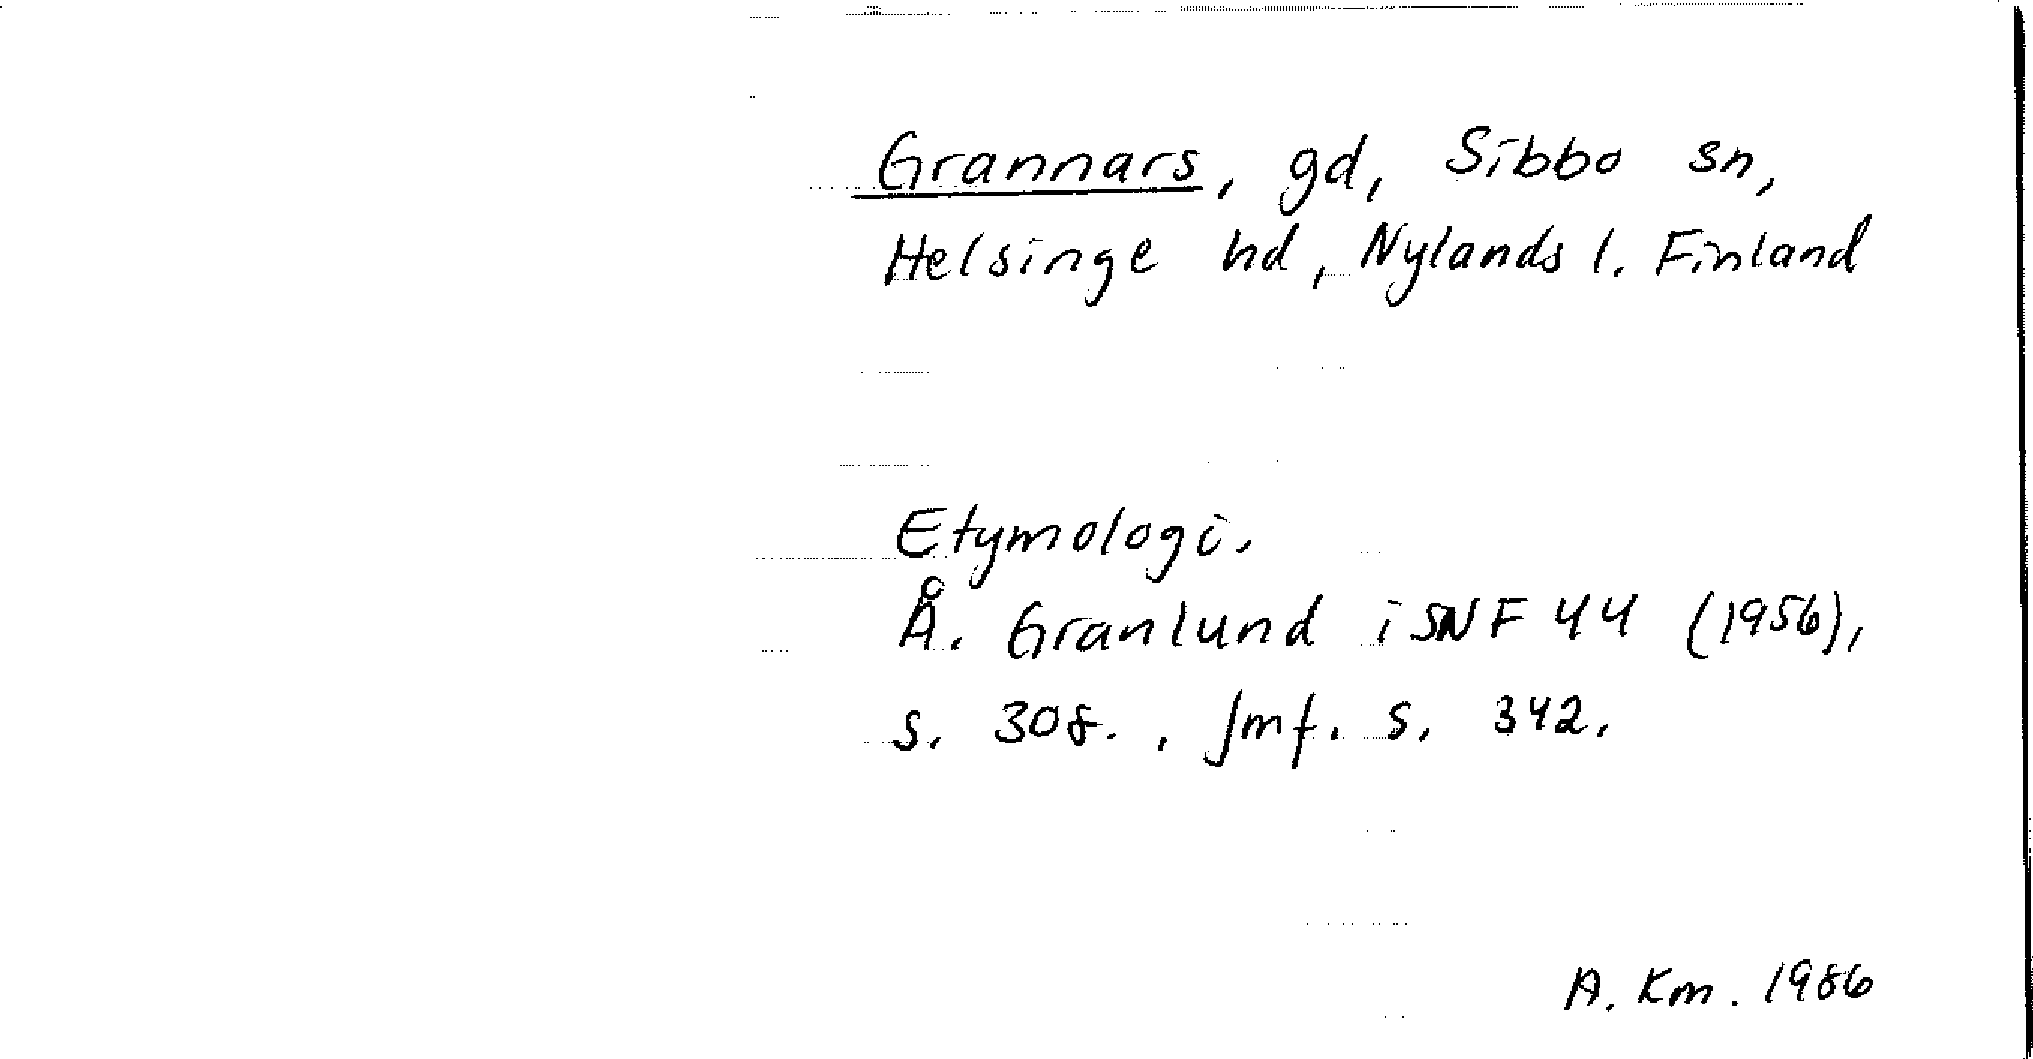 Grannars, gd, Sibbo sn,
Helsinge hd, Nylands l. Finland
Etymologi.
Å. Granlund i SNF 44 (1956),
s. 308. , Jmf. s. 342.
A. Km. 1986